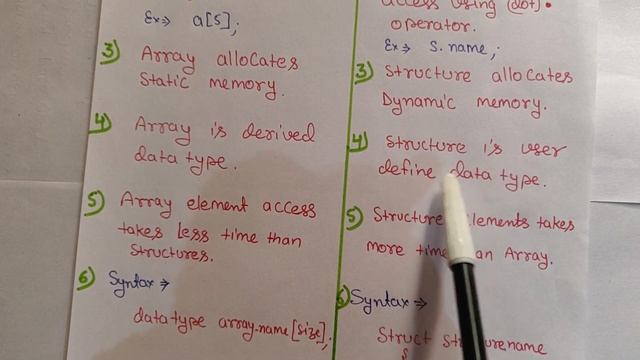 Ex⇒ a[5];
3) Array allocates
Static memory.
4) Array is derived
data type.
5) Array element access
takes less time than
Structures.
6) Syntax⇒
datatype array-name[size];
access using (dot).
operator.
Ex⇒ S.name;
3) Structure allocates
Dynamic memory.
4) Structure is user
define data type.
5) Structure elements takes
more time an Array.
6) Syntax⇒
Struct name